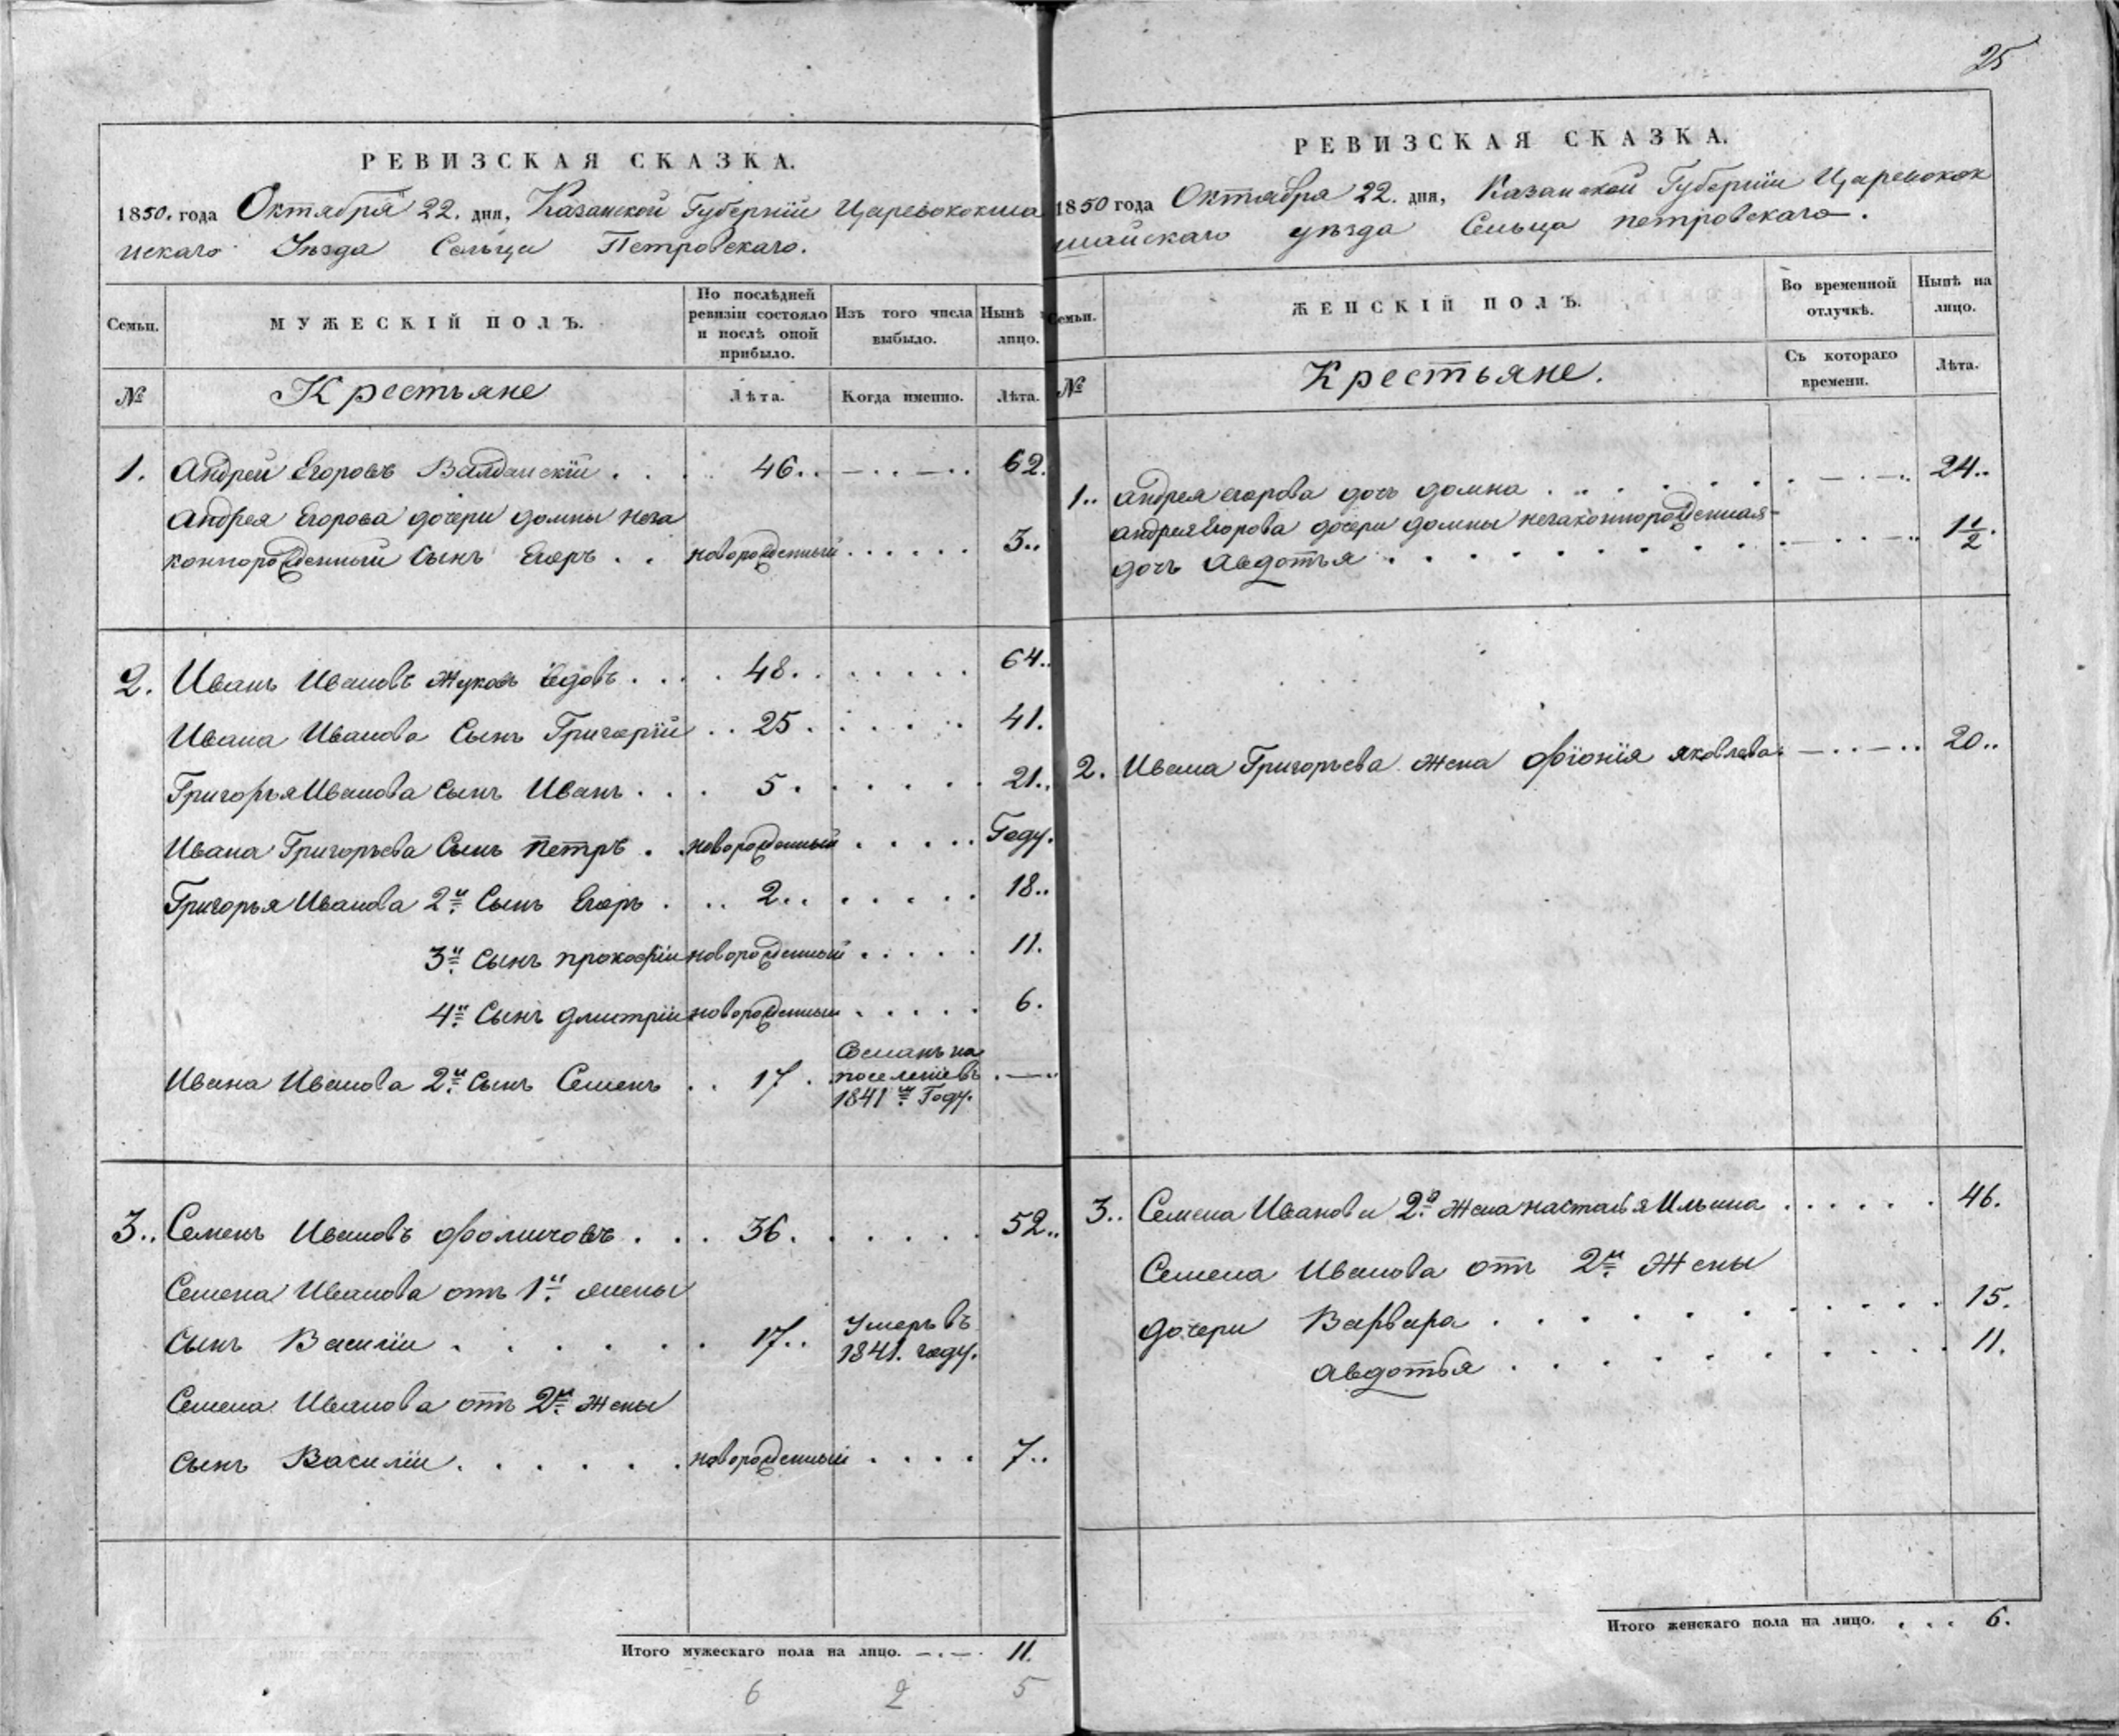 РЕВИЗСКАЯ СКАЗКА.
1850. года Октября 22. дня, Казанской Губернїи Царевококша
искаго Уѣзда Сельца Петровскаго.
Семьи.
МУЖЕСКІЙ ПОЛЪ.
По послѣдней
ревизіи состояло
и послѣ оной
прибыло.
Изъ того числа
выбыло.
Нынѣ
лицо.
№
Крестьяне
Лѣта.
Когда именно.
Лѣта.
1. Андрей Егоровъ . . . 46.. —..—.. 62.
Андрея Егорова дочери домны неза
коннорожденный Сынъ Егоръ . . новорожденный . . . . . . 3..
2. Иванъ Ивановъ Жуковъ вдовъ . . . . 48. . . . . . . 64..
Ивана Иванова Сынъ Григорїй . . 25 . . . . . . 41.
Григорья Иванова Сынъ Иванъ . . . 5 . . . . . . 21..
Ивана Григорьева Сынъ петръ . . новорожденный . . . . . Году.
Григорья Иванова 2й Сынъ Егоръ . . . 2.. . . . . . 18..
3й Сынъ прокофїи новорожденный . . . . . 11.
4й Сынъ дмитрїи новорожденный . . . . . 6.
Ивана Иванова 2й Сынъ Семенъ . . 17 . Сосланъ на
поселенїе въ . — ..
1841м Году.
3.. Семенъ Ивановъ Фомичовъ . . . 36. . . . . . . 52..
Семена Иванова отъ 1й жены
Сынъ Василїи . . . . . . 17.. Умеръ въ
1841. году.
Семена Иванова отъ 2й жены
Сынъ Василїи . . . . . . новорожденный . . . . 7..
Итого мужескаго пола на лицо. —.—. 11.
6 2 5
25
РЕВИЗСКАЯ СКАЗКА.
1850 года Октября 22. дня, Казанской Губернїи Царевокок
шайскаго уѣзда Сельца петровскаго.
Семьи.
ЖЕНСКІЙ ПОЛЪ.
Во временной
отлучкѣ.
Нынѣ на
лицо.
№
Крестьяне.
Съ котораго
времени.
Лѣта.
1.. андрея егорова дочь домна . . . . . . . . — . — .. 24..
андрея Егорова дочери домны незаконнорожденная
дочь Авдотья . . . . . . . . . . — . . — .. 1 1/2.
2. Ивана Григорьева жена Фїонїя яковлева — . . — . . 20..
3.. Семена Иванова 2я жена настасья Ильина . . . . . . 46.
Семена Иванова отъ 2й жены
дочери Варвара . . . . . . . . . . . 15.
авдотья . . . . . . . . . . . 11.
Итого женскаго пола на лицо. . . . 6.